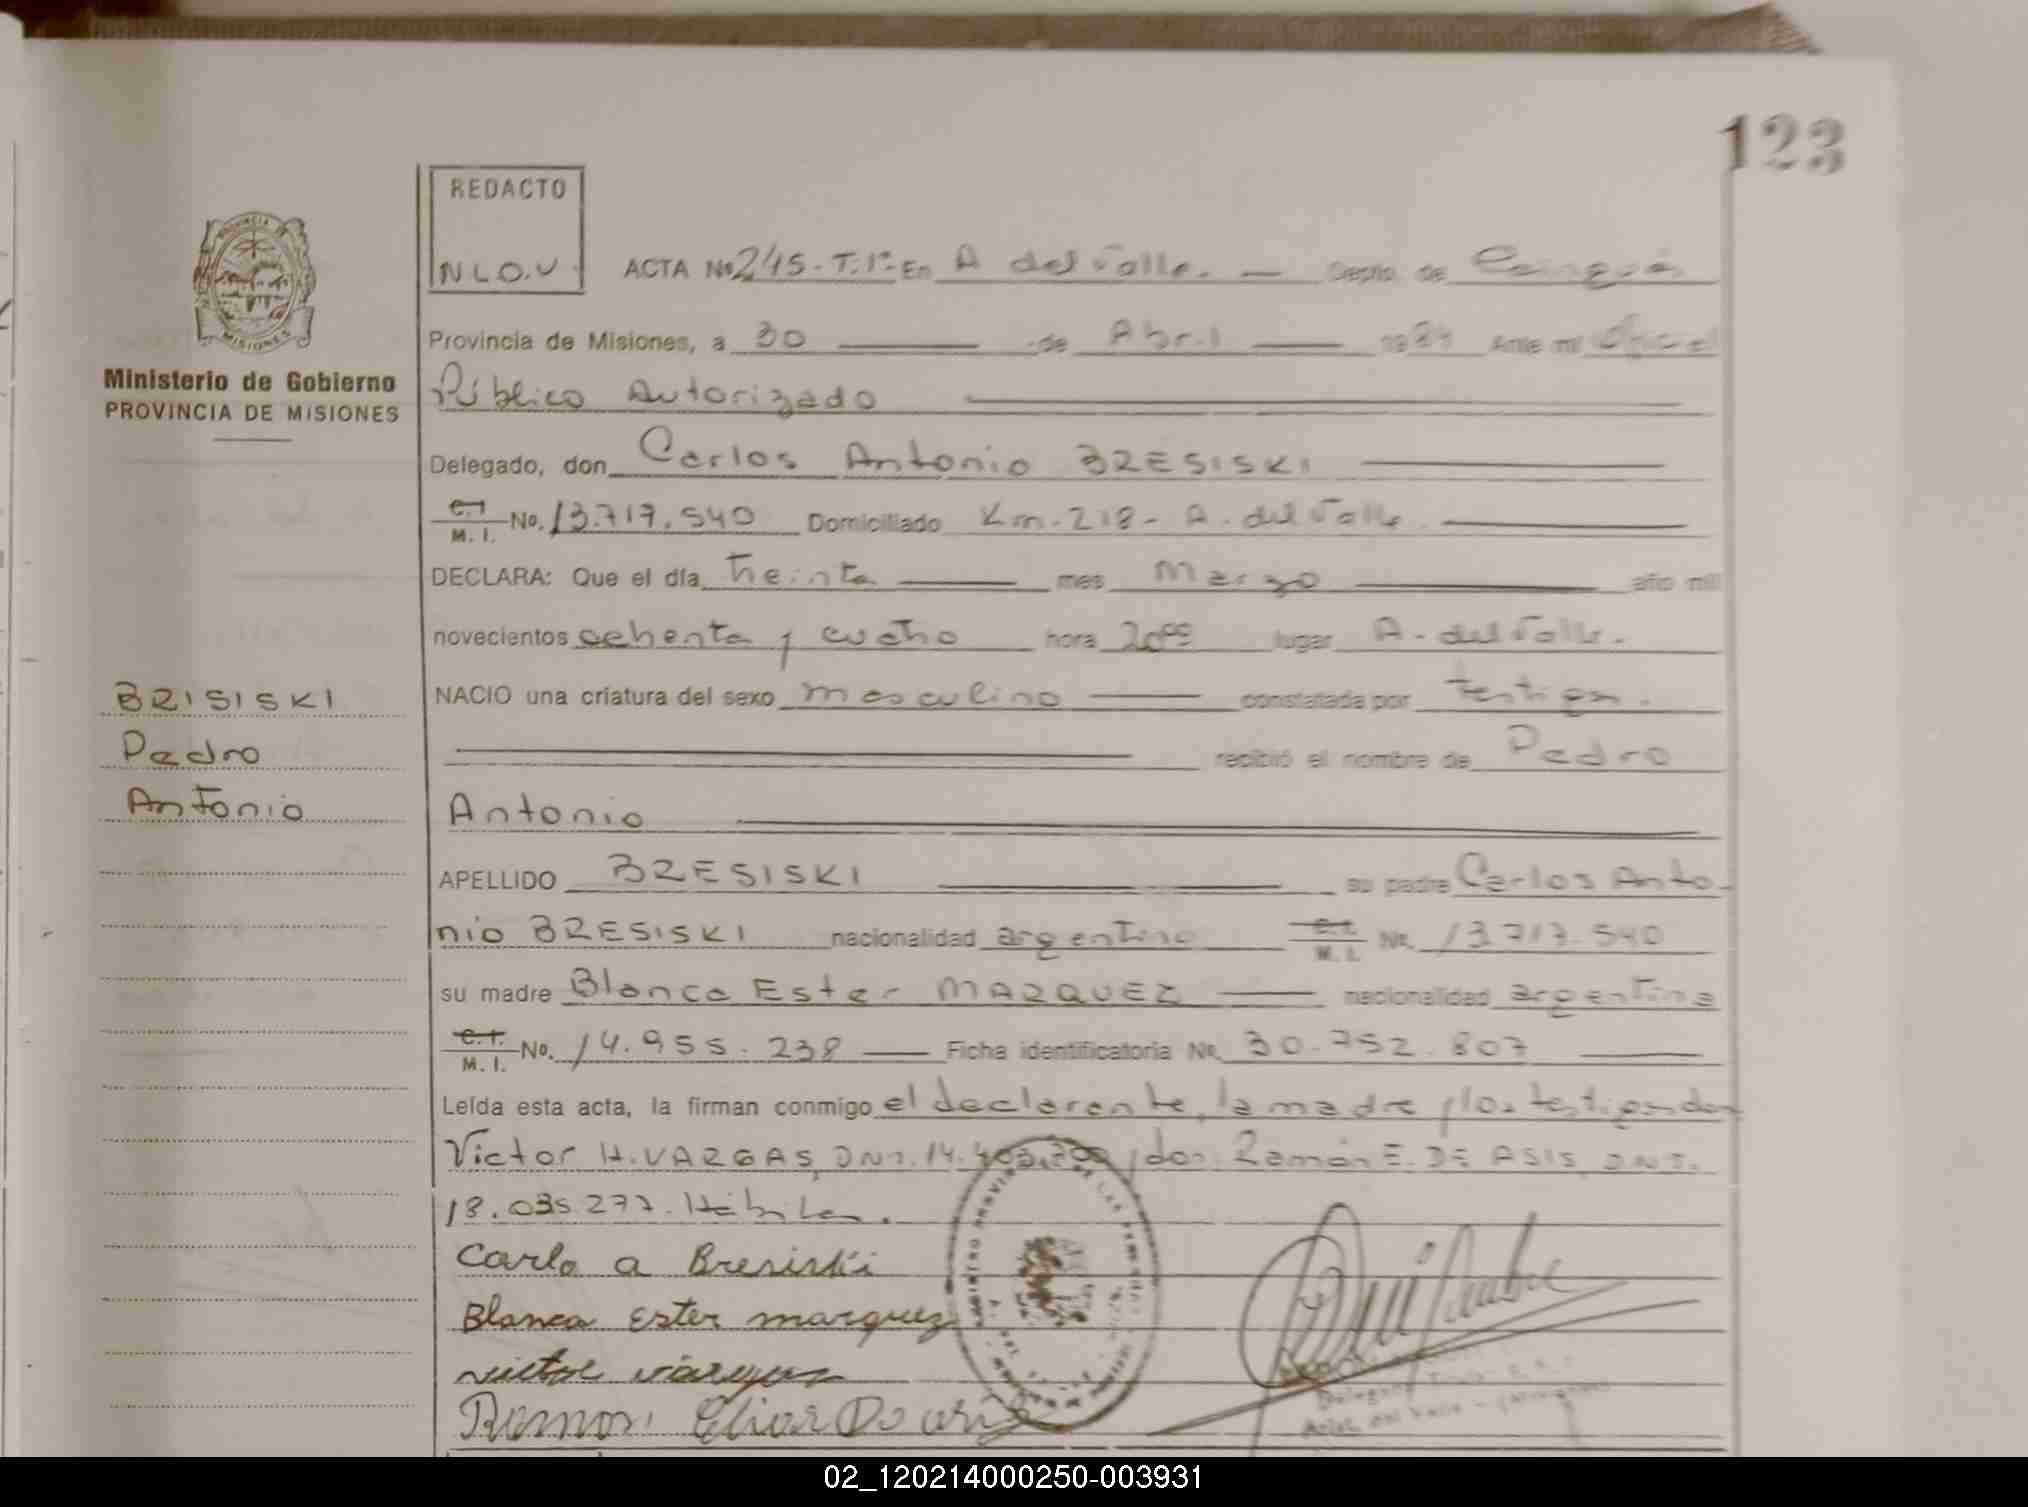 123
REDACTO
N.L.O.V.
ACTA No 245-T.1º- En A del Valle. — Depto. de Cainguás
Provincia de Misiones, a 30 de Abril 1984 Ante mí Oficial
Público Autorizado
Ministerio de Gobierno
PROVINCIA DE MISIONES
Delegado, don Carlos Antonio BRESISKI
C.I. M. I. No. 13.717.540 Domiciliado Km-218- A. del Valle
DECLARA: Que el día treinta mes Marzo año mil
novecientos ochenta y cuatro hora 20:00 lugar A. del Valle.
NACIO una criatura del sexo masculino constatada por testigos.
recibió el nombre de Pedro
Antonio
BRISISKI
Pedro
Antonio
APELLIDO BRESISKI su padre Carlos Anto-
nio BRESISKI nacionalidad argentino C.I. M. I. No. 13.717.540
su madre Blanca Ester MARQUEZ nacionalidad argentina
C.I. M. I. No. 14.955.238 Ficha identificatoria No. 30.752.807
Leída esta acta, la firman conmigo el declarante, la madre y los testigos don
Victor H. VARGAS, DNI. 14.403.200 y don Ramón E. DE ASIS, D.N.I.
18.035.277. Hábiles.
Carlo a Bresiski
Blanca Ester marquez
victor vargas
Ramon Elias De asis
02_120214000250-003931